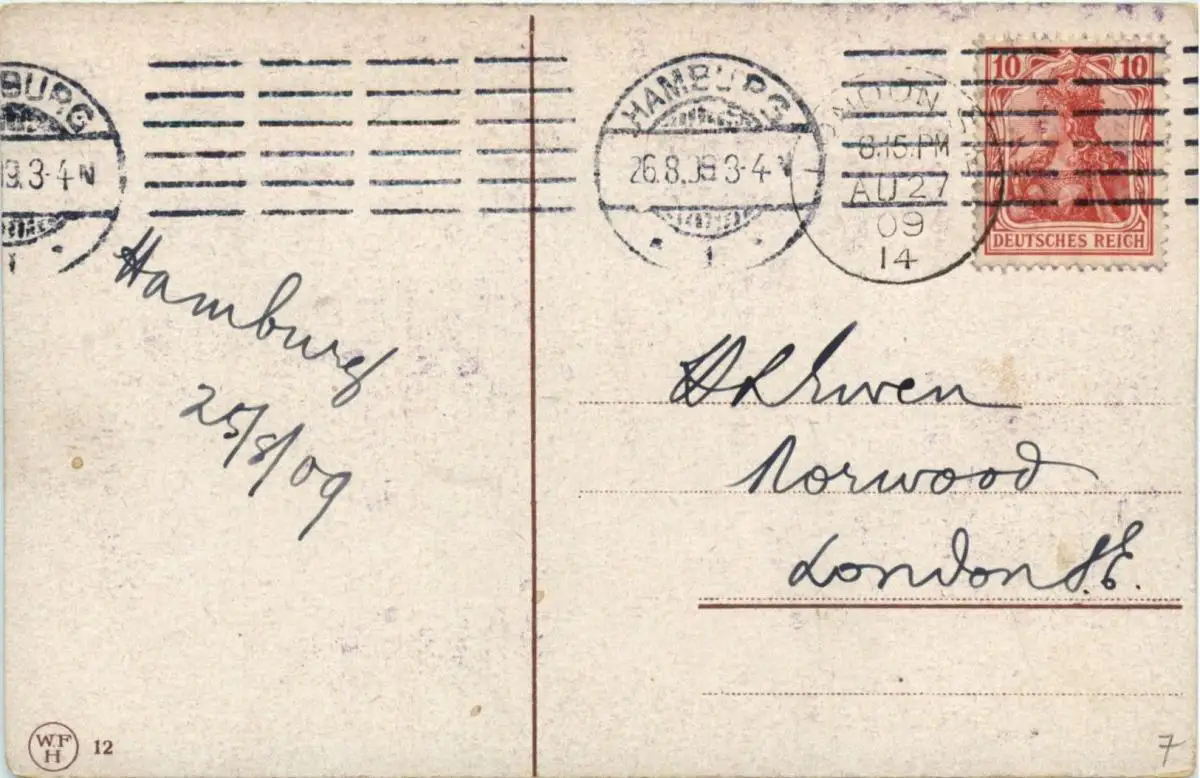 BURG
9.3-4 N
1
HAMBURG
26.8.09.3-4 N
1
LONDON
8.15.PM
AU 27
09
14
10 10
DEUTSCHES REICH
Hamburg
25/8/09
H L Ewen
Norwood
London S.E.
W.F
H
12
7